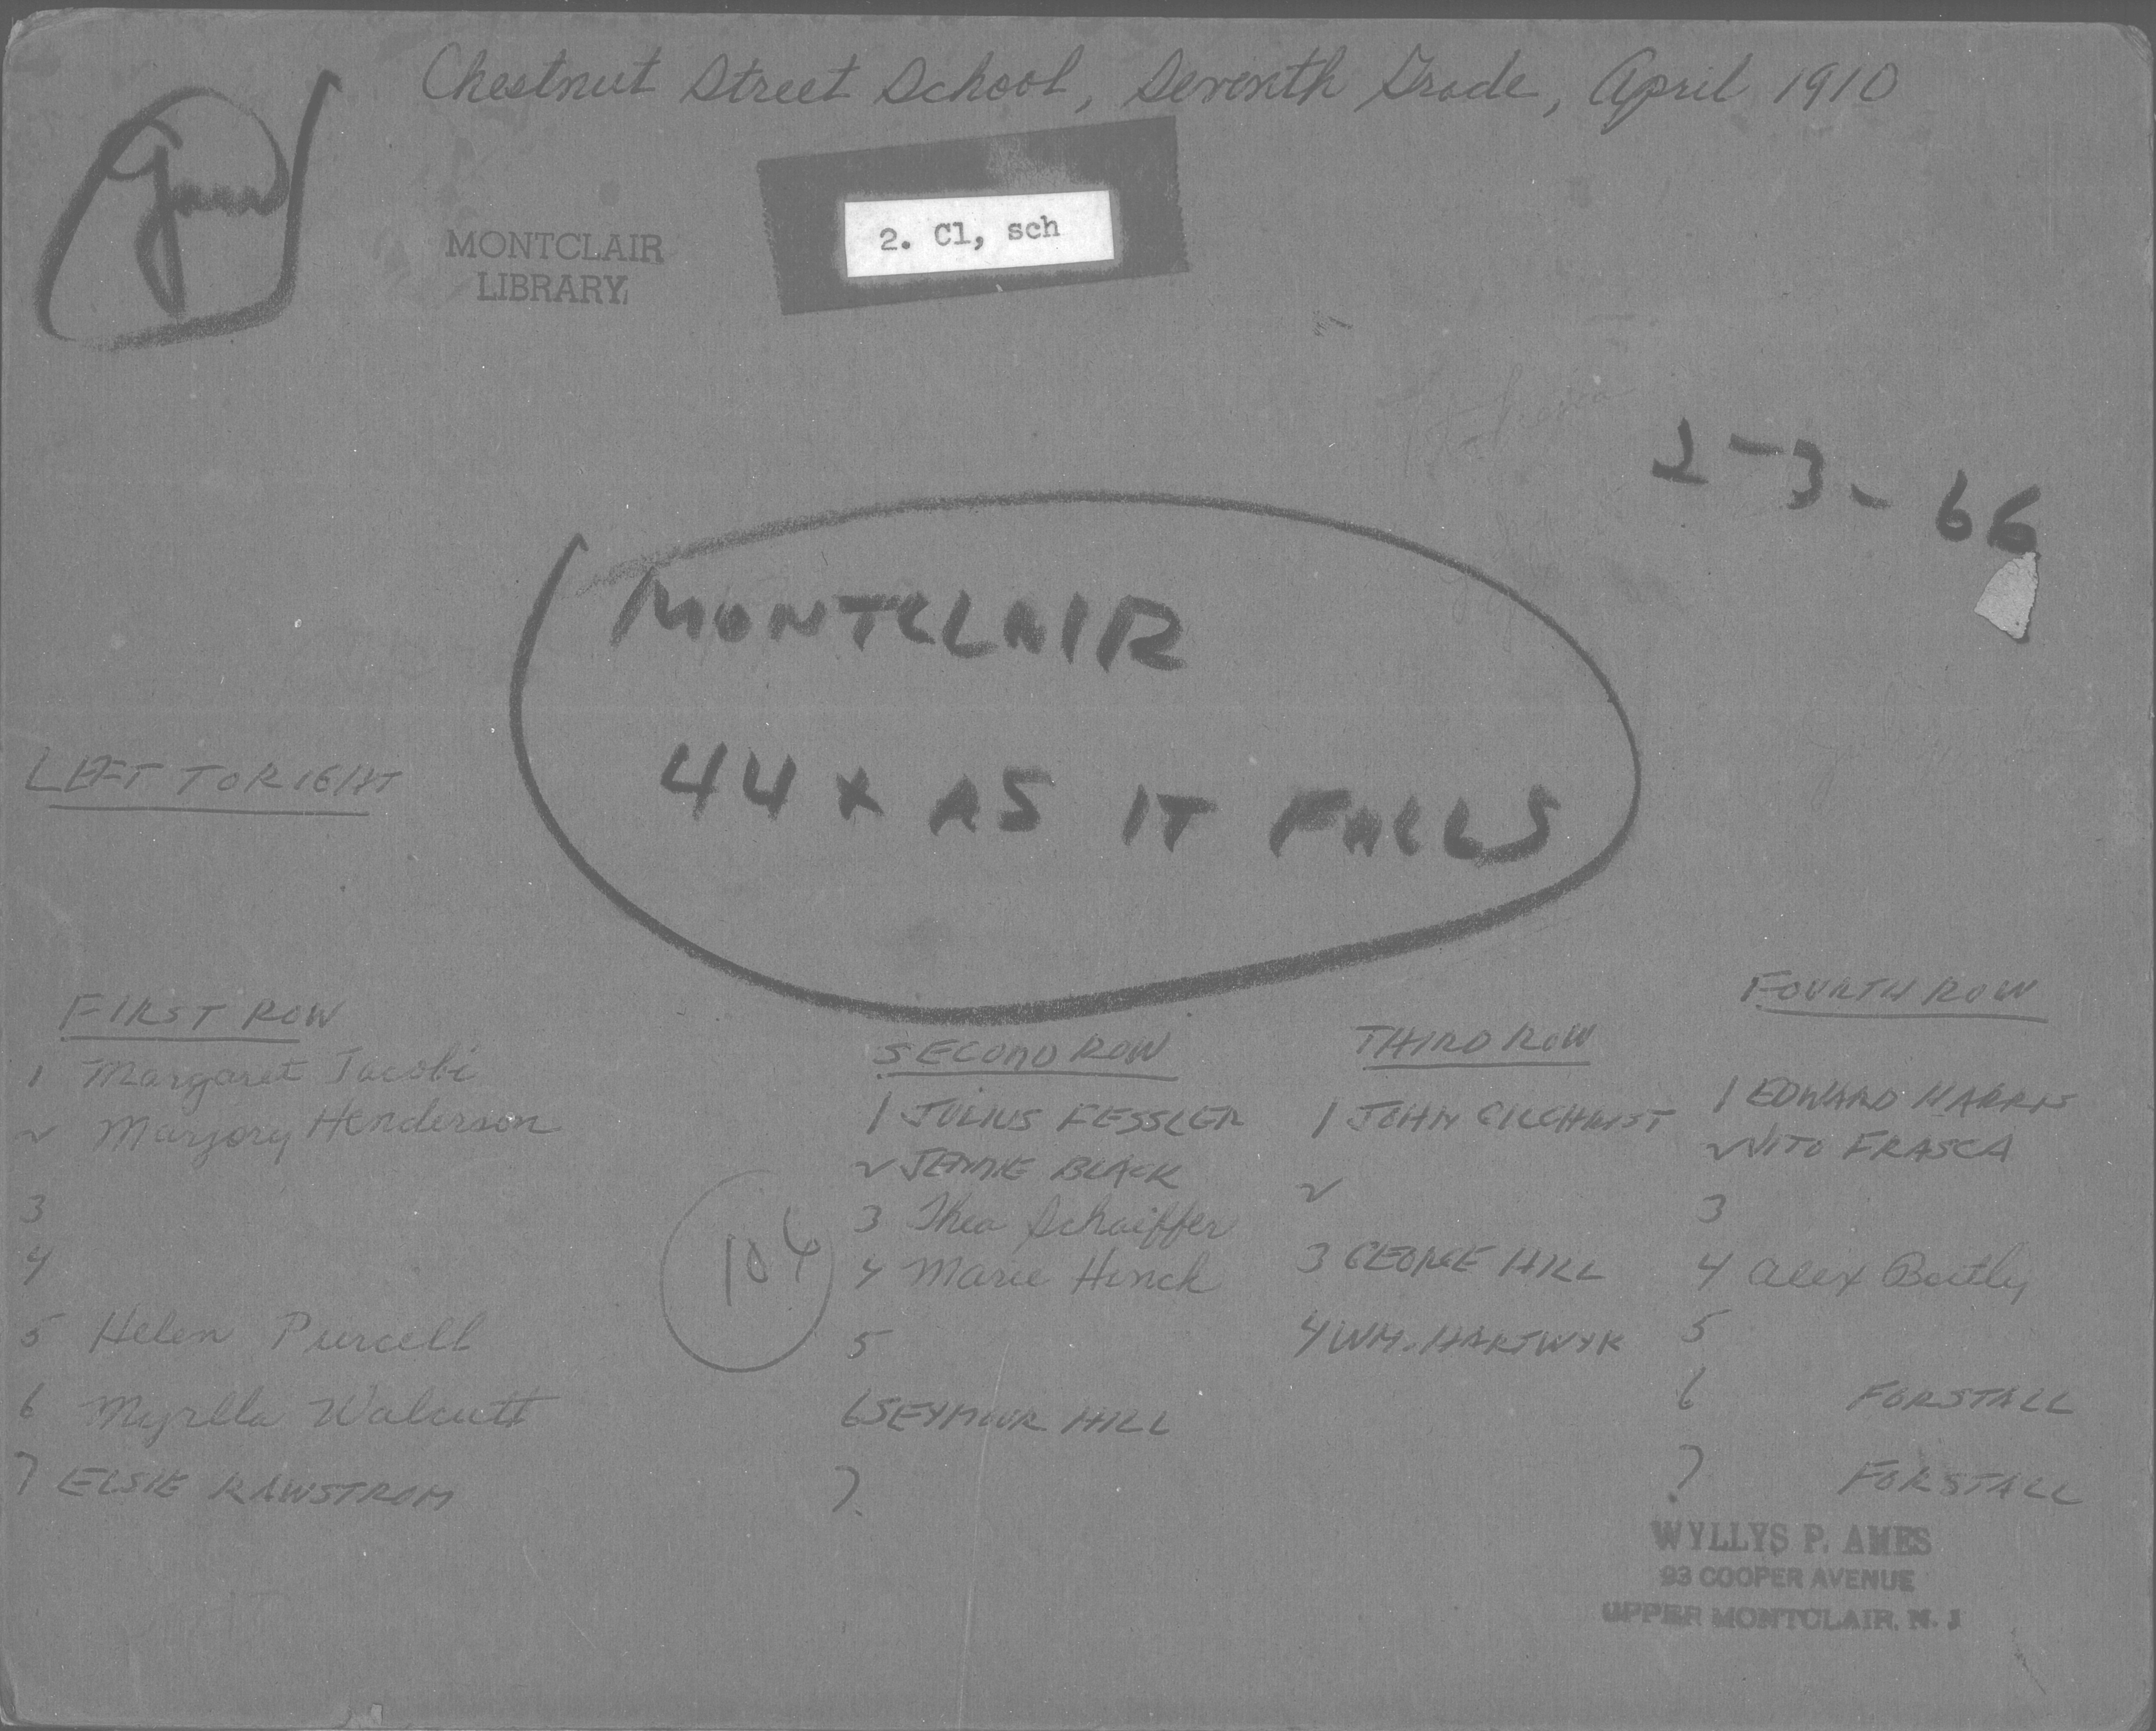 Chestnut Street School, Seventh Grade, April 1910
MONTCLAIR
LIBRARY
2. Cl, sch
2-3-66
MONTCLAIR
44 x AS IT FALLS
LEFT TO RIGHT
FIRST ROW
1 Margaret Jacobi
2 Marjory Henderson
3
4
5 Helen Purcell
6 Myrlla Walcutt
7 ELSIE RAWSTROM
106
SECOND ROW
1 JULIUS FESSLER
2 JENNIE BLACK
3 Thea Schaiffer
4 Marie Hinck
5
6 SEYMOUR HILL
7.
THIRD ROW
1 JOHN GILCHRIST
2
3 GEORGE HILL
4 WM. HARTWYK
FOURTH ROW
1 EDWARD HARRIS
2 VITO FRASCA
3
4 Alex Bartly
5
6 FORSTALL
? FORSTALL
WYLLYS P. AMES
93 COOPER AVENUE
UPPER MONTCLAIR, N. J